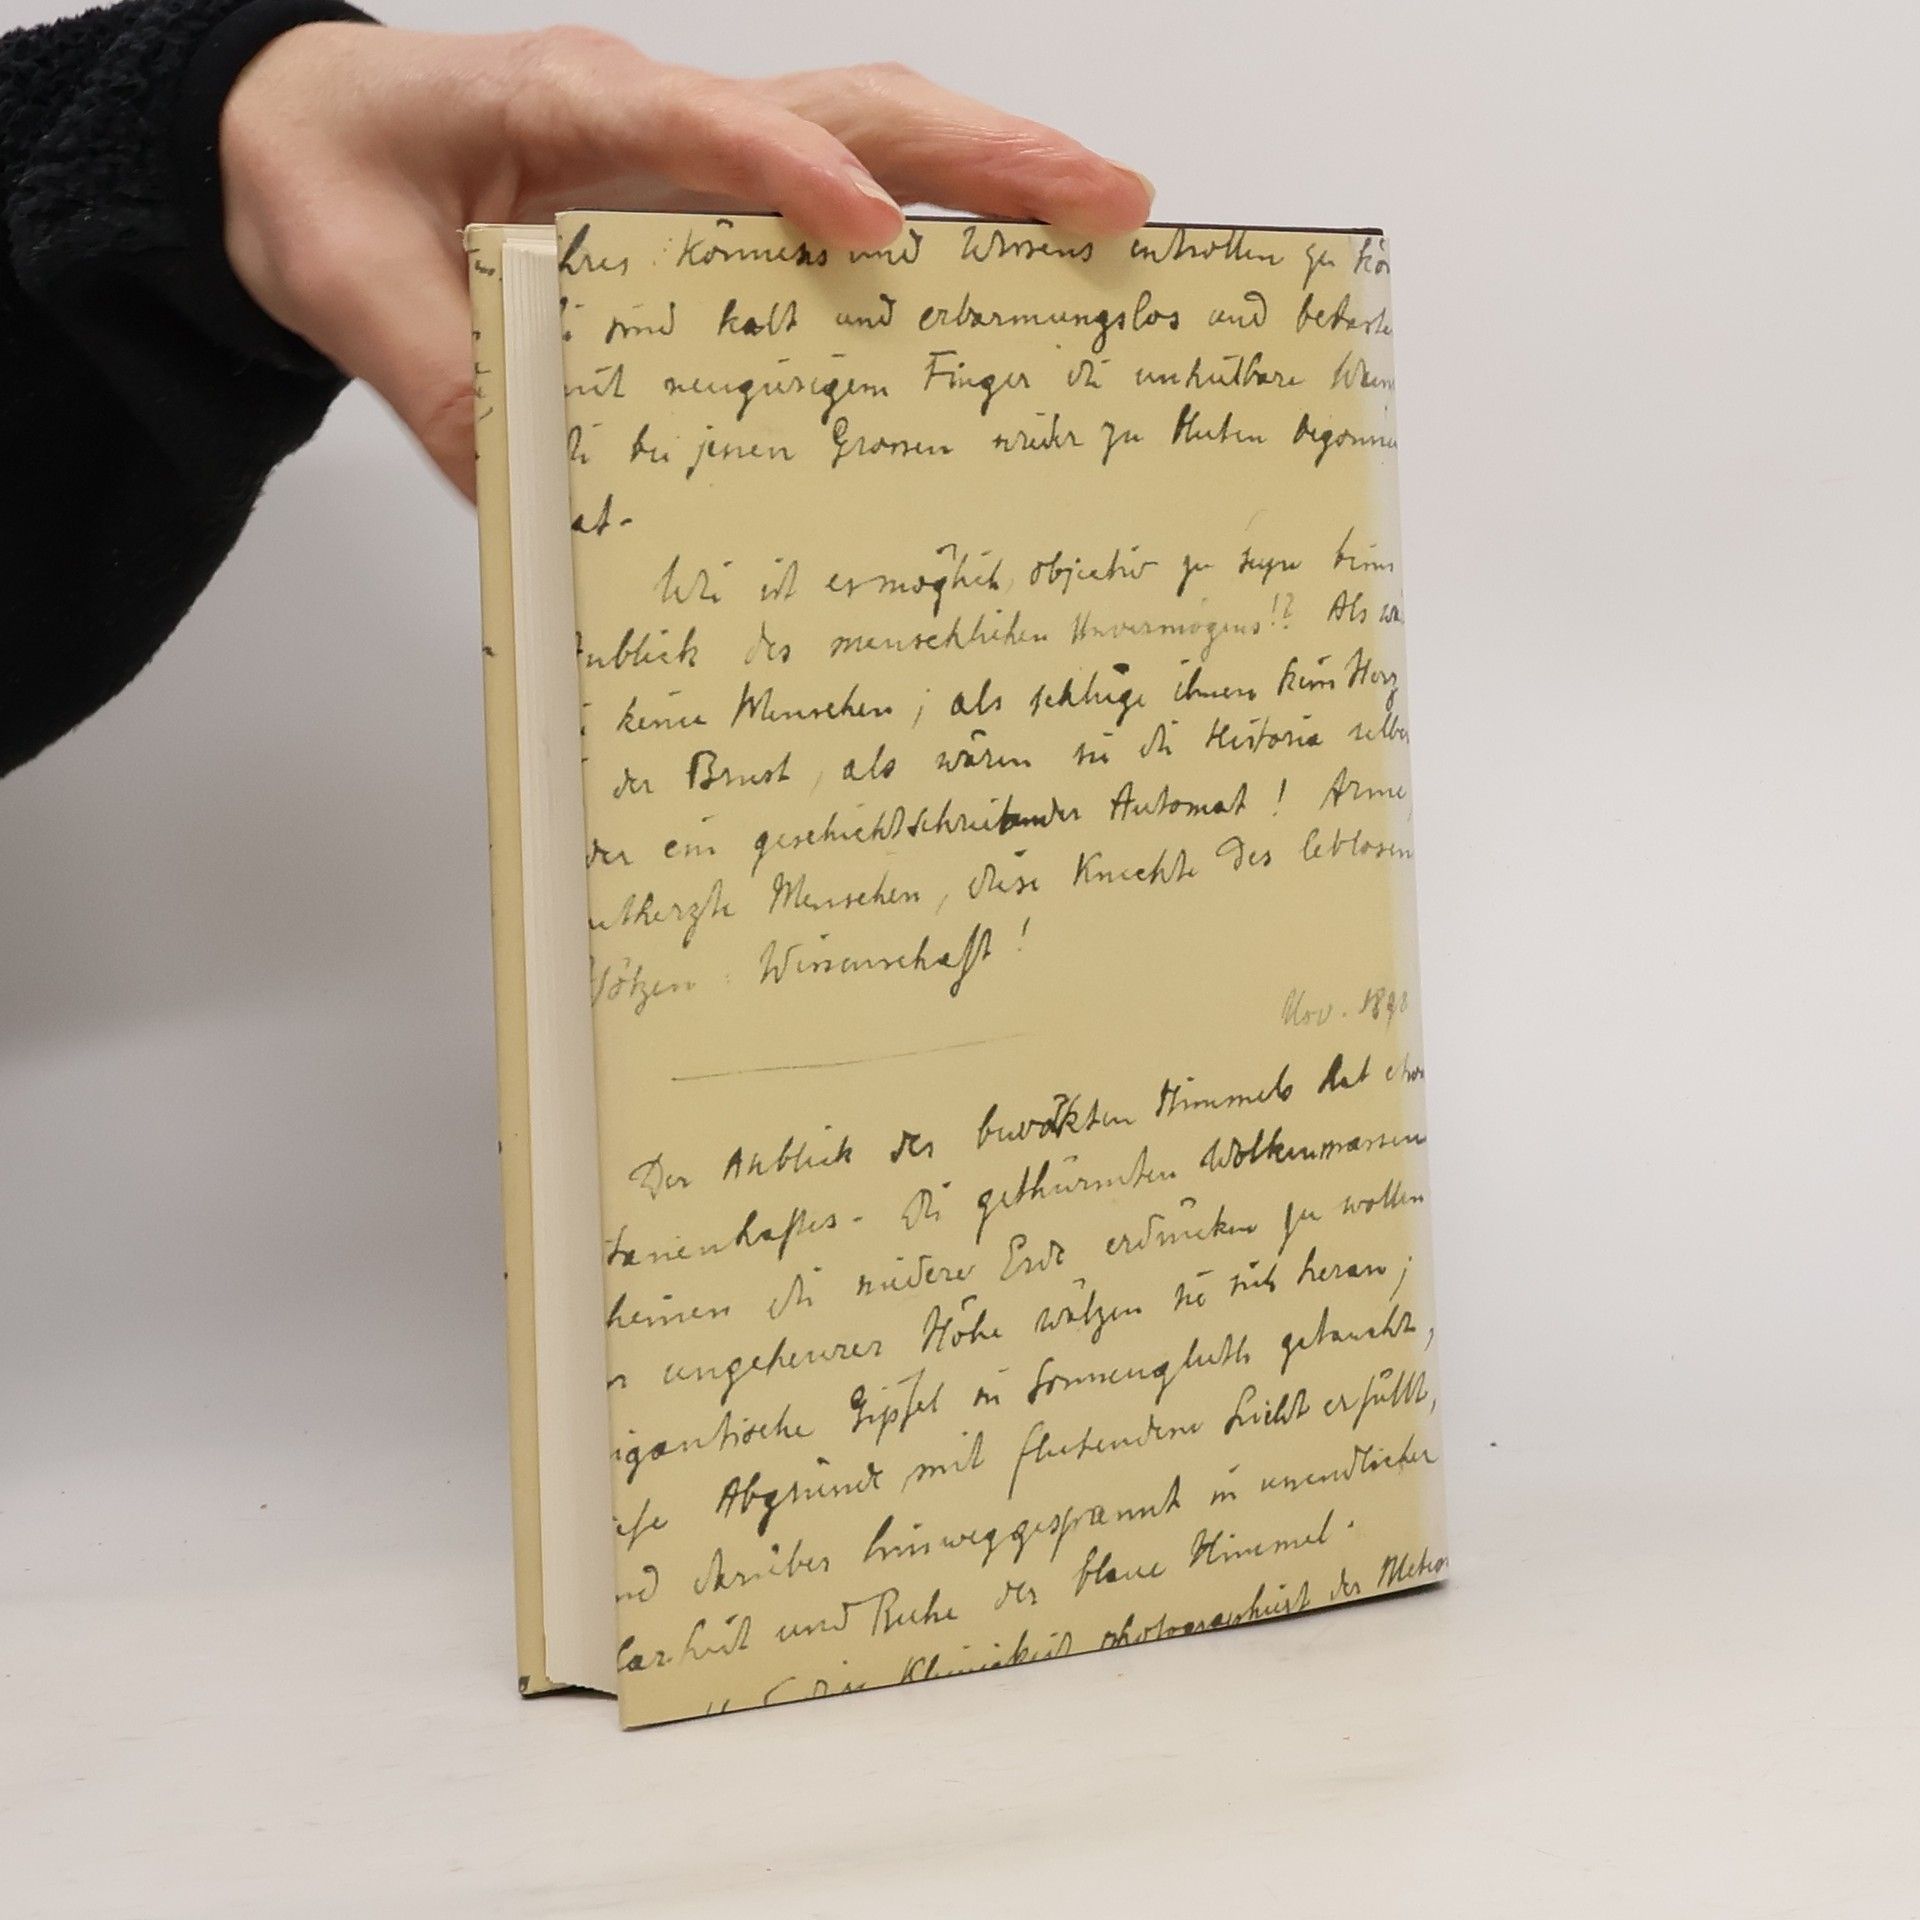 hres Könnens und Wissens entrollen zu kön
sind kalt und erbarmungslos und betaste
mit neugierigem Finger die unheilbare
die bei jenen Grossen wieder zu bluten begonnen
at.
Wie ist es möglich, objectiv zu seyn beim
Anblick des menschlichen Unvermögens!? Als wä
keine Menschen; als schlüge ihnen kein Herz
der Brust, als wären sie die Historia selber
der ein geschichtschreibender Automat! Arme,
ntherzte Menschen, diese Knechte des leblosen
Götzen: Wissenschaft!
Nov. 1898
Der Anblick des bewölkten Himmels hat etwas
tanenhaftes. Die gethürmten Wolkenmassen
heinen die niedere Erde erdrücken zu wollen
n ungeheurer Höhe wälzen sie sich heran;
igantische Gipfel in Sonnengluth getaucht,
iefe Abgründe mit flutendem Licht erfüllt,
nd darüber hinweggespannt in unendlicher
larheit und Ruhe der blaue Himmel.
die Kleinigkeit photographiert der Meteor